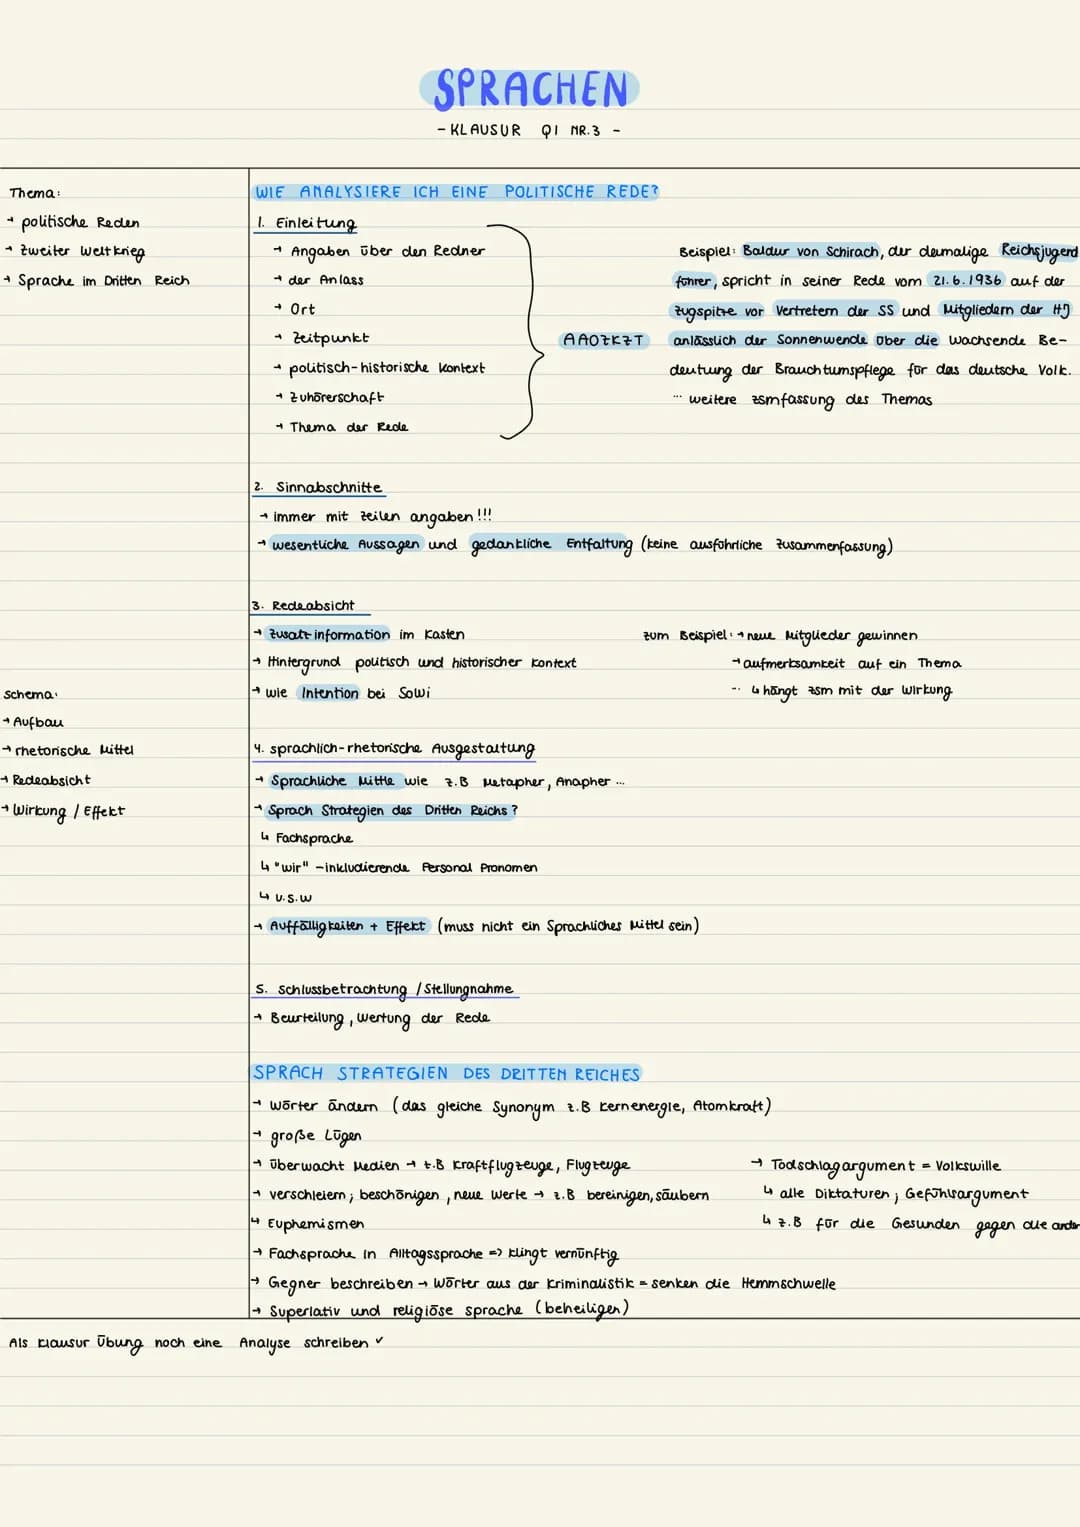 SPRACHEN
- KLAUSUR Q1 NR.3 -
Thema:
→ politische Reden
→ Zweiter Weltkrieg
→ Sprache im Dritten Reich
Schema:
→ Aufbau
→ rhetorische Mittel
→ Redeabsicht
→ Wirkung / Effekt
WIE ANALYSIERE ICH EINE POLITISCHE REDE?
1. Einleitung
→ Angaben über den Redner
→ der Anlass
→ Ort
→ Zeitpunkt
→ politisch-historische Kontext
→ Zuhörerschaft
→ Thema der Rede
AAOZKZT
Beispiel: Baldur von Schirach, der damalige Reichsjugend
führer, spricht in seiner Rede vom 21.6.1936 auf der
Zugspitze vor Vertretern der SS und Mitgliedern der HJ
anlässlich der Sonnenwende über die wachsende Be-
deutung der Brauchtumspflege für das deutsche Volk.
... weitere zsmfassung des Themas
2. Sinnabschnitte
→ immer mit Zeilen angaben!!!
→ wesentliche Aussagen und gedankliche Entfaltung (keine ausführliche Zusammenfassung)
3. Redeabsicht
→ Zusatzinformation im Kasten
→ Hintergrund politisch und historischer Kontext
→ wie Intention bei SoWi
zum Beispiel: → neue Mitglieder gewinnen
→ aufmerksamkeit auf ein Thema
... ↳ hängt zsm mit der Wirkung
4. sprachlich-rhetorische Ausgestaltung
→ Sprachliche Mittle wie z.B Metapher, Anapher ...
→ Sprach Strategien des Dritten Reichs?
↳ Fachsprache
↳ "wir" - inkludierende Personal Pronomen
↳ u.s.w
→ Auffälligkeiten + Effekt (muss nicht ein Sprachliches Mittel sein)
5. Schlussbetrachtung / Stellungnahme
→ Beurteilung, Wertung der Rede
SPRACH STRATEGIEN DES DRITTEN REICHES
→ Wörter ändern (das gleiche Synonym z.B Kernenergie, Atomkraft)
→ große Lügen
→ überwacht Medien → z.B Kraftflugzeuge, Flugzeuge
→ verschleiern; beschönigen, neue Werte → z.B bereinigen, säubern
↳ Euphemismen
→ Fachsprache in Alltagssprache => klingt vernünftig
→ Gegner beschreiben → Wörter aus der Kriminalistik = senken die Hemmschwelle
→ Superlativ und religiöse sprache (beheiligen)
→ Todschlagargument = Volkswille
↳ alle Diktaturen; Gefühlsargument
↳ z.B für die Gesunden gegen die ander
Als Klausur Übung noch eine Analyse schreiben ✓